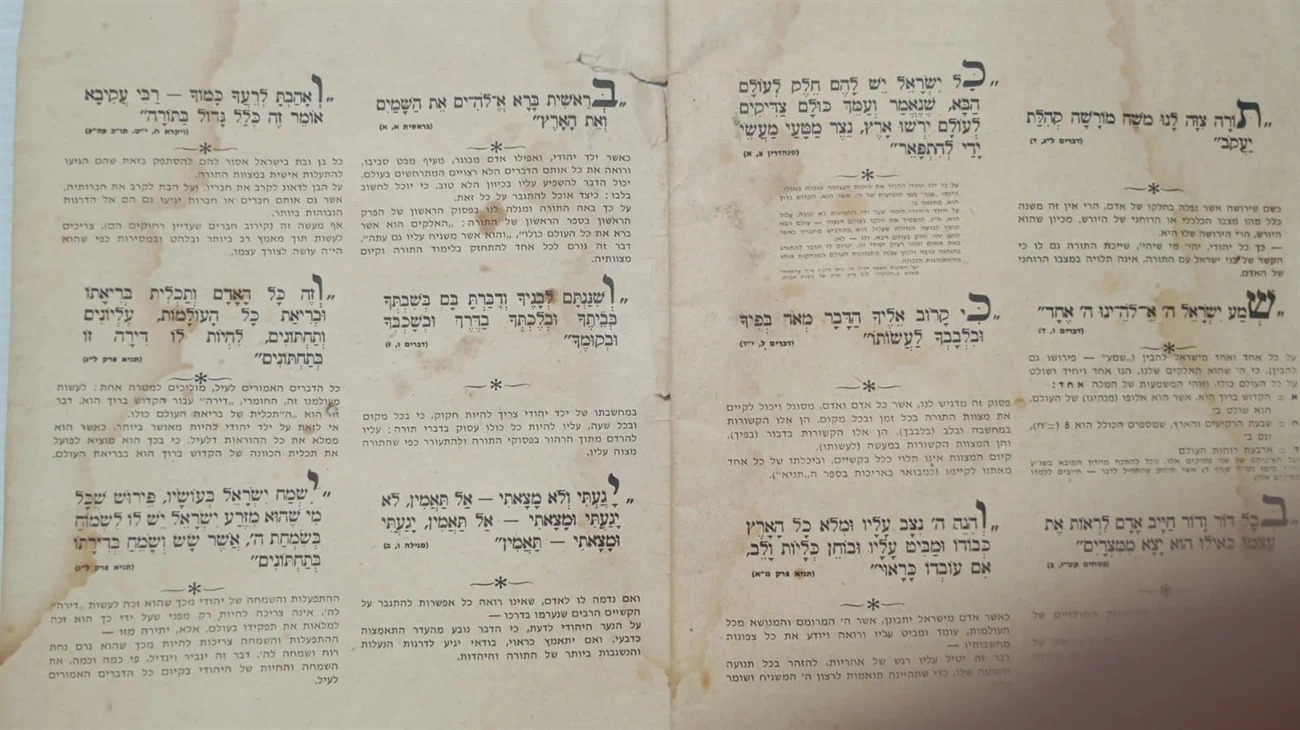 „תּוֹרָה צִוָּה לָנוּ מֹשֶׁה מוֹרָשָׁה קְהִלַּת
יַעֲקֹב"
(דברים ל״ג, ד)
כשם שירושה אשר נפלה בחלקו של אדם, הרי אין זה משנה
כלל מהו מצבו הכלכלי או הרוחני של היורש, מכיון שהוא
היורש, הרי הירושה שלו היא.
— כך כל יהודי, יהי׳ מי שיהי׳, שייכת התורה גם לו כי
הקשר של בני ישראל עם התורה, אינה תלויה במצבו הרוחני
של האדם.
„שְׁמַע יִשְׂרָאֵל ה׳ אֱ־לֹהֵינוּ ה׳ אֶחָד"
(דברים ו, ד)
על כל אחד ואחד מישראל להבין („שמע" — פירושו גם
להבין), כי ה׳ שהוא האלקים שלנו, הנו אחד ויחיד ושולט
על כל העולם כולו. וזוהי המשמעות של המלה אחד:
א = הקדוש ברוך הוא, אשר הוא אלופו (מנהיגו) של העולם,
הוא שולט ב־
ח = שבעת הרקיעים והארץ, שמספרם הכולל הוא 8 (=ח),
וגם ב־
ד = ארבעת רוחות העולם
„בְּכָל דּוֹר וָדוֹר חַיָּיב אָדָם לִרְאוֹת אֶת
עַצְמוֹ כְּאִילוּ הוּא יָצָא מִמִּצְרַיִם"
(פסחים קט״ז, ב)
„כָּל יִשְׂרָאֵל יֵשׁ לָהֶם חֵלֶק לְעוֹלָם
הַבָּא, שֶׁנֶּאֱמַר וְעַמֵּךְ כּוּלָּם צַדִּיקִים
לְעוֹלָם יִרְשׁוּ אָרֶץ, נֵצֶר מַטָּעַי מַעֲשֵׂי
יָדַי לְהִתְפָּאֵר"
(סנהדרין צ, א)
„כִּי קָרוֹב אֵלֶיךָ הַדָּבָר מְאֹד בְּפִיךָ
וּבִלְבָבְךָ לַעֲשׂוֹתוֹ"
(דברים ל, י״ד)
פסוק זה מדגיש לנו, אשר כל אדם ואדם, מסוגל ויכול לקיים
את מצוות התורה בכל זמן ובכל מקום. הן אלו הקשורות
במחשבה ובלב (בלבבך). הן אלו הקשורות בדבור (בפיך),
והן המצוות הקשורות במעשה (לעשותו).
קיום המצוות אינו תלוי כלל בקשיים, וביכלתו של כל אחד
מאתנו לקיימו (כמבואר באריכות בספר ה„תניא").
„וְהִנֵּה ה׳ נִצָּב עָלָיו וּמְלֹא כָל הָאָרֶץ
כְּבוֹדוֹ וּמַבִּיט עָלָיו וּבוֹחֵן כְּלָיוֹת וָלֵב,
אִם עוֹבְדוֹ כָּרָאוּי"
(תניא פרק מ״א)
כאשר אדם מישראל יתבונן, אשר ה׳ המרומם והמנושא מכל
העולמות, עומד ומביט עליו ורואה ויודע את כל צפונות
מחשבותיו —
דבר זה יטיל עליו רגש של אחריות, להזהר בכל תנועה
ותנועה שלו, כדי שתהיינה תואמות לרצון ה׳ המשגיח ושומר
„בְּרֵאשִׁית בָּרָא אֱ־לֹהִים אֵת הַשָּׁמַיִם
וְאֵת הָאָרֶץ"
(בראשית א, א)
כאשר ילד יהודי, ואפילו אדם מבוגר, מעיף מבט סביבו,
ורואה את כל אותם הדברים הלא רצויים המתרחשים בעולם,
יכול הדבר להשפיע עליו בכיוון הלא טוב, כי יוכל לחשוב
בלבו: כיצד אוכל להתגבר על כל זאת.
על כך באה התורה ומגלה לנו בפסוק הראשון של הפרק
הראשון בספר הראשון של התורה: „האלקים הוא אשר
ברא את כל העולם כולו", „והוא אשר משגיח עליו גם עתה".
דבר זה גורם לכל אחד להתחזק בלימוד התורה וקיום
מצוותיה.
„וְשִׁנַּנְתָּם לְבָנֶיךָ וְדִבַּרְתָּ בָּם בְּשִׁבְתְּךָ
בְּבֵיתֶךָ וּבְלֶכְתְּךָ בַדֶּרֶךְ וּבְשָׁכְבְּךָ
וּבְקוּמֶךָ"
(דברים ו, ז)
במחשבתו של ילד יהודי צריך להיות חקוק, כי בכל מקום
ובכל שעה, עליו להיות כל כולו עסוק בדברי תורה: עליו
להרדם מתוך הרהור בפסוקי התורה ולהתעורר כפי שהתורה
מצוה עליו.
„יָגַעְתִּי וְלֹא מָצָאתִי — אַל תַּאֲמִין, לֹא
יָגַעְתִּי וּמָצָאתִי — אַל תַּאֲמִין, יָגַעְתִּי
וּמָצָאתִי — תַּאֲמִין"
(מגילה ו, ב)
ואם נדמה לו לאדם, שאינו רואה כל אפשרות להתגבר על
הקשיים הרבים שנערמו בדרכו —
על הנער היהודי לדעת, כי הדבר נובע מהעדר התאמצות
כדבעי. ואם יתאמץ כראוי, בודאי יגיע לדרגות הנעלות
והנשגבות ביותר של התורה והיהדות.
„וְאָהַבְתָּ לְרֵעֲךָ כָּמוֹךָ — רַבִּי עֲקִיבָא
אוֹמֵר זֶה כְּלַל גָּדוֹל בַּתּוֹרָה"
(ויקרא ח, י״ט, תו״כ עה״פ)
כל בן ובת בישראל אסור להם להסתפק בזאת שהם הגיעו
להתעלות אישית במצוות התורה.
על הבן לדאוג לקרב את חבריו, ועל הבת לקרב את חברותיה,
אשר גם אותם חברים או חברות יגיעו גם הם אל הדרגות
הגבוהות ביותר.
אף מעשה זה (קירוב חברים שעדיין רחוקים הם), צריכים
לעשות תוך מאמץ רב ביותר ובלהט ובמסירות כפי שהוא
הי״ה עושה לצורך עצמו.
„וְזֶה כָּל הָאָדָם וְתַכְלִית בְּרִיאָתוֹ
וּבְרִיאַת כָּל הָעוֹלָמוֹת, עֶלְיוֹנִים
וְתַחְתּוֹנִים, לִהְיוֹת לוֹ דִּירָה זוֹ
בְּתַחְתּוֹנִים"
(תניא פרק ל״ג)
כל הדברים האמורים לעיל, מוליכים למטרה אחת: לעשות
מעולמנו זה, החומרי, „דירה" עבור הקדוש ברוך הוא. דבר
זה הוא „ה״תכלית של בריאת העולם כולו.
אי לזאת על ילד יהודי להיות מאושר ביותר, כאשר הוא
ממלא את כל ההוראות דלעיל. כי בכך הוא מוציא לפועל
את תכלית הכוונה של הקדוש ברוך הוא בבריאת העולם.
„יִשְׂמַח יִשְׂרָאֵל בְּעוֹשָׂיו, פֵּירוּשׁ שֶׁכָּל
מִי שֶׁהוּא מִזֶּרַע יִשְׂרָאֵל יֵשׁ לוֹ לִשְׂמוֹחַ
בְּשִׂמְחַת ה׳, אֲשֶׁר שָׂשׂ וְשָׂמֵחַ בְּדִירָתוֹ
בְּתַחְתּוֹנִים"
(תניא פרק ל״ג)
ההתפעלות והשמחה של יהודי מכך שהוא זכה לעשות „דירה"
לה׳, אינה צריכה להיות רק מפני שעל ידי כך הוא זכה
למלאות את תפקידו בעולם. אלא, יתירה מזו —
ההתפעלות והשמחה צריכות להיות מכך שהוא גרם נחת
רוח ושמחה לה׳. דבר זה יגביר ויגדיל, פי כמה וכמה, את
השמחה והחיות של היהודי בקיום כל הדברים האמורים
לעיל.